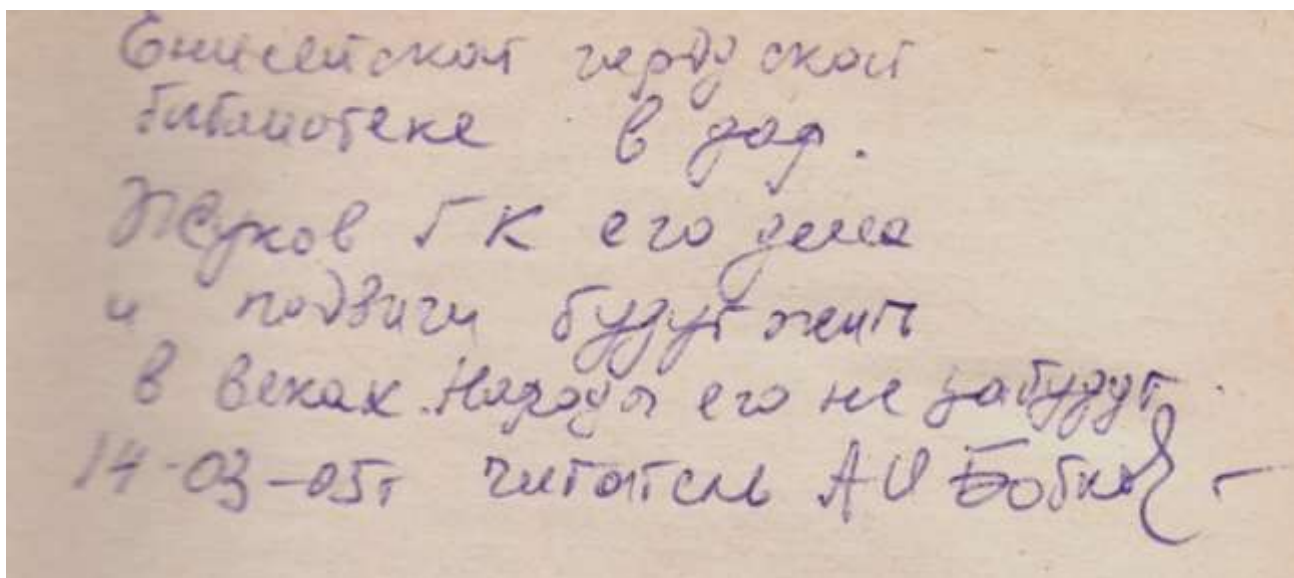 Енисейской городской
библиотеке в дар.
Жуков ГК его дела
и подвиги будут жить
в веках. Народы его не забудут.
14-03-05г читатель АИ